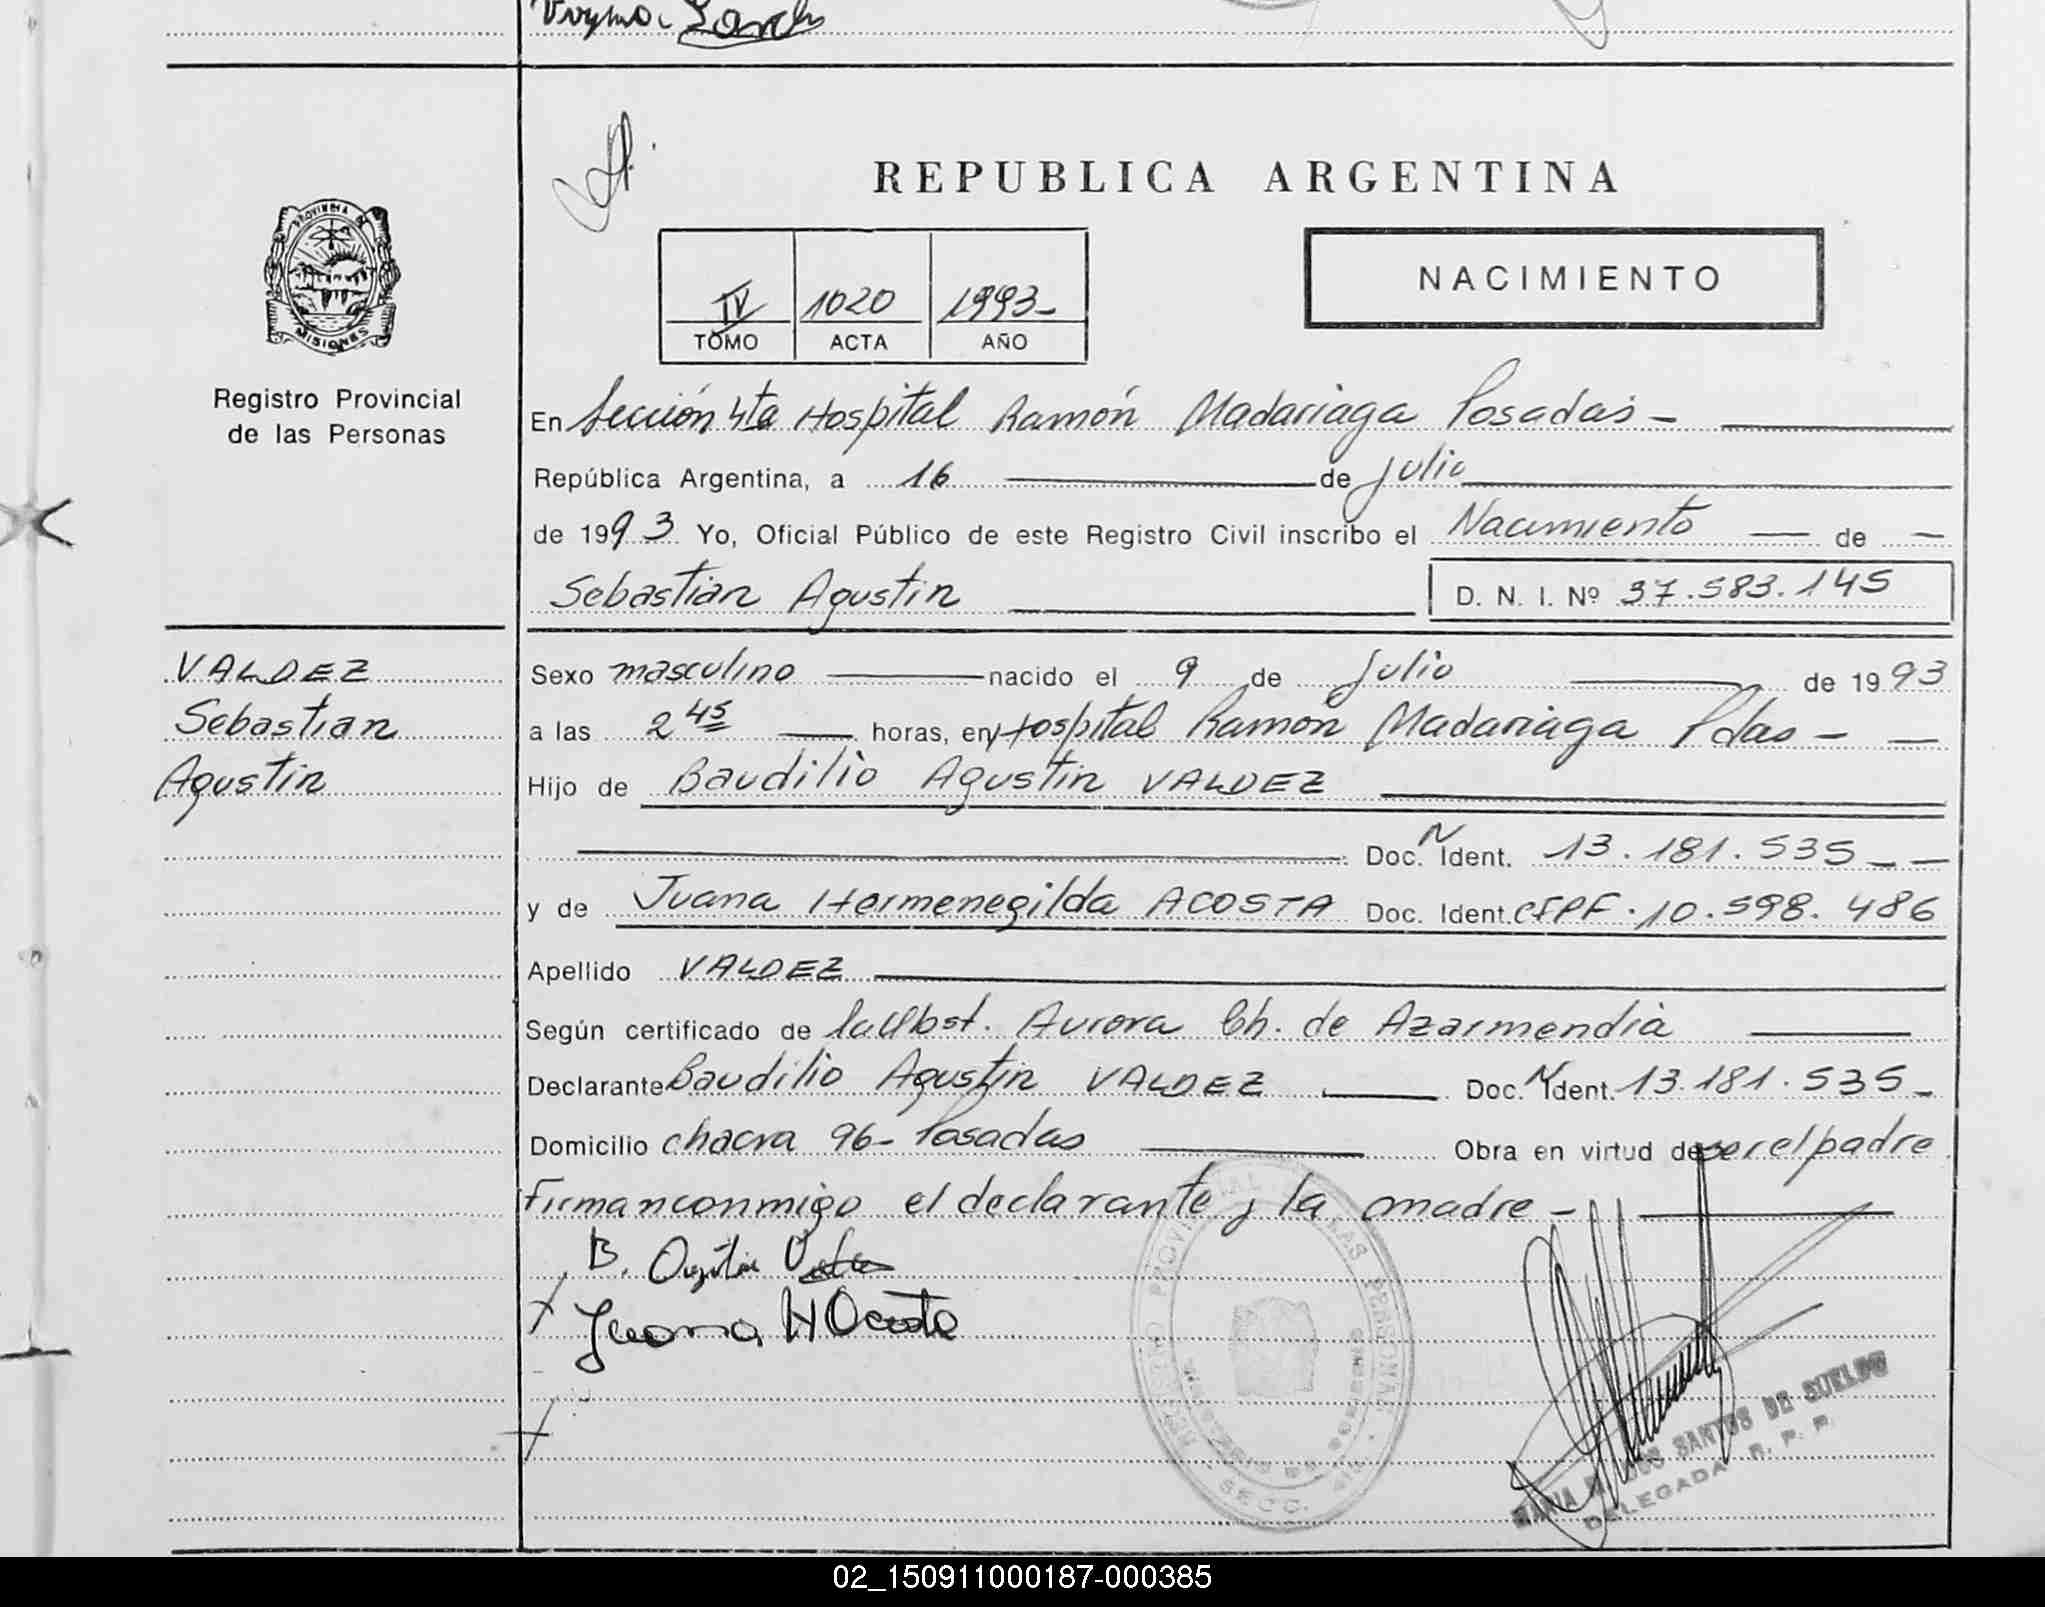 REPUBLICA ARGENTINA
PROVINCIA DE
MISIONES
Registro Provincial
de las Personas
IV 1020 1993-
TOMO ACTA AÑO
NACIMIENTO
En Sección 4ta Hospital Ramón Madariaga Posadas -
República Argentina, a 16 de julio
de 1993 Yo, Oficial Público de este Registro Civil inscribo el Nacimiento de
Sebastian Agustin D. N. I. Nº 37.583.145
VALDEZ
Sebastian
Agustin
Sexo masculino nacido el 9 de Julio de 1993
a las 2 45 horas, en Hospital Ramón Madariaga Pdas -
Hijo de Baudilio Agustin VALDEZ
Doc. N Ident. 13.181.535 - -
y de Juana Hermenegilda ACOSTA Doc. Ident. CIPF. 10.598.486
Apellido VALDEZ
Según certificado de la Obst. Aurora Ch. de Azarmendia
Declarante Baudilio Agustin VALDEZ Doc. N Ident. 13.181.535 -
Domicilio chacra 96 - Posadas Obra en virtud de ser el padre
Firman conmigo el declarante y la madre -
B. Agustin
Juana H Acosta
REGISTRO PROVINCIAL PERSONAS
SECC.
MARIA SANTOS DE SUELDO
DELEGADA R. P. P.
02_150911000187-000385